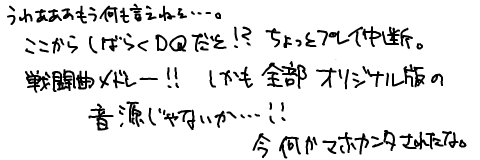 うわあああもう何も言えねぇ…。
ここからしばらくDQだと!? ちょっとプレイ中断。
戦闘曲メドレー!! しかも全部オリジナル版の
音源じゃないか…!!
今何かマホカンタされたな。